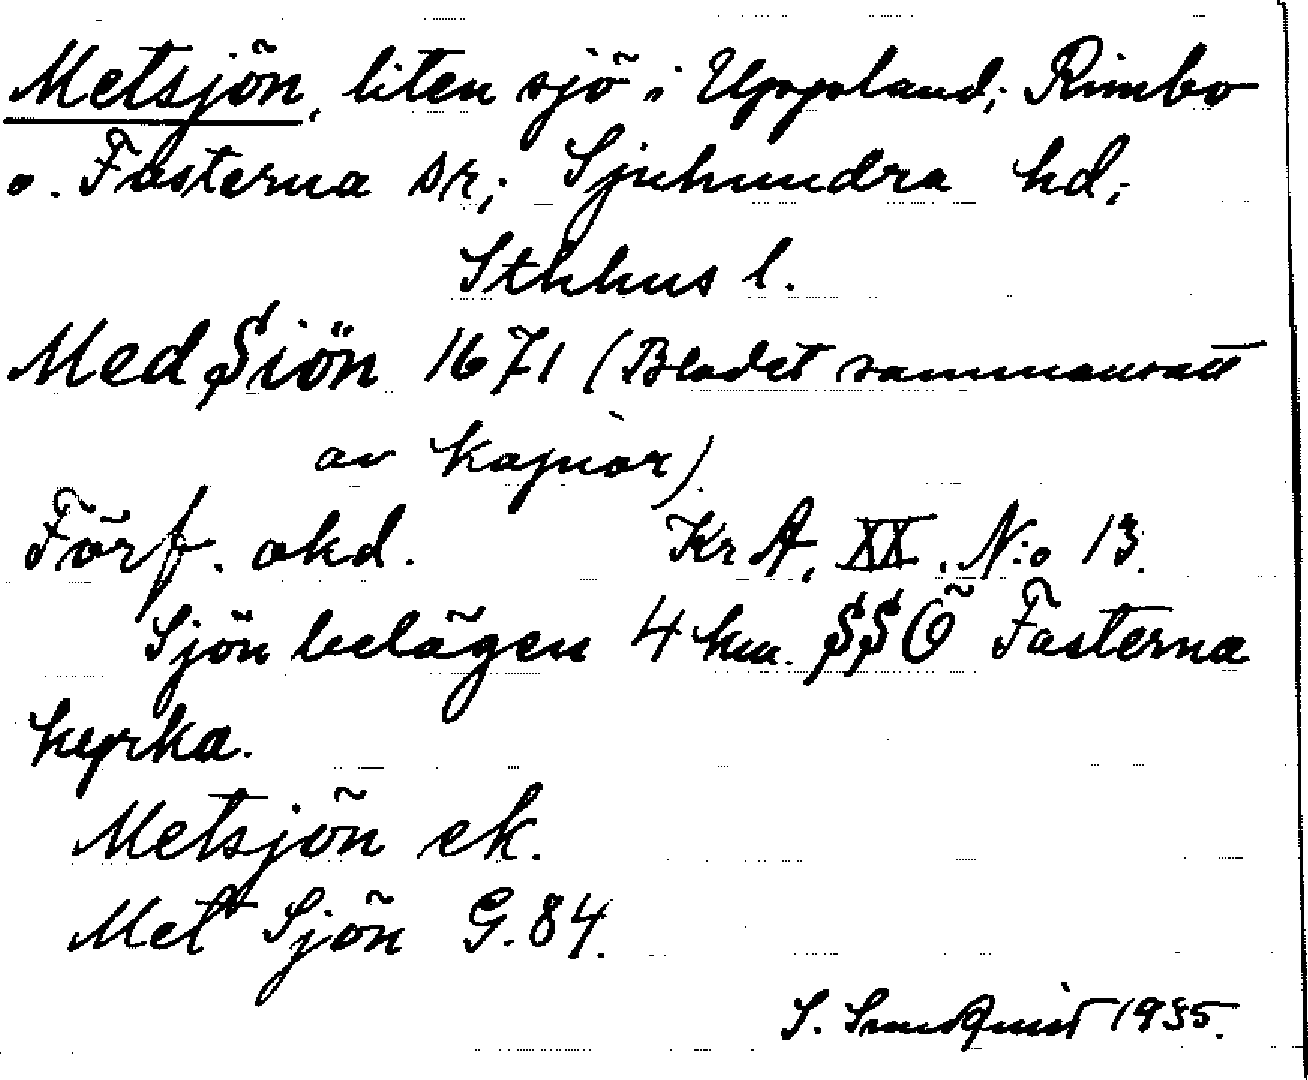 Metsjön, liten sjö i Uppland; Rimbo
o. Fasterna sr; Sjuhundra hd;
Sthhus l.
Med Siön 1671 (Bladet sammansatt
av kapior)
Förf. okd. Kr A, XX. N:o 13.
Sjön belägen 4 km. SSÖ Fasterna
kyrka.
Metsjön ek.
Met Sjön G. 84.
S. Sundquist 1935.